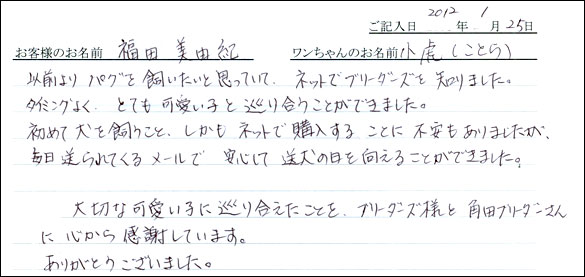 ご記入日 2012年 1月 25日
お客様のお名前 福田 美由紀 ワンちゃんのお名前 小虎(ことら)
以前より パグを飼いたいと思っていて、ネットでブリーダーズを知りました。
タイミングよく、とても可愛い子と巡り合うことができました。
初めて犬を飼うこと、しかもネットで購入することに不安もありましたが、
毎日送られてくるメールで 安心して 送犬の日を向えることができました。
大切な可愛い子に巡り合えたことを、ブリーダーズ様と角田ブリーダーさん
に心から感謝しています。
ありがとうございました。